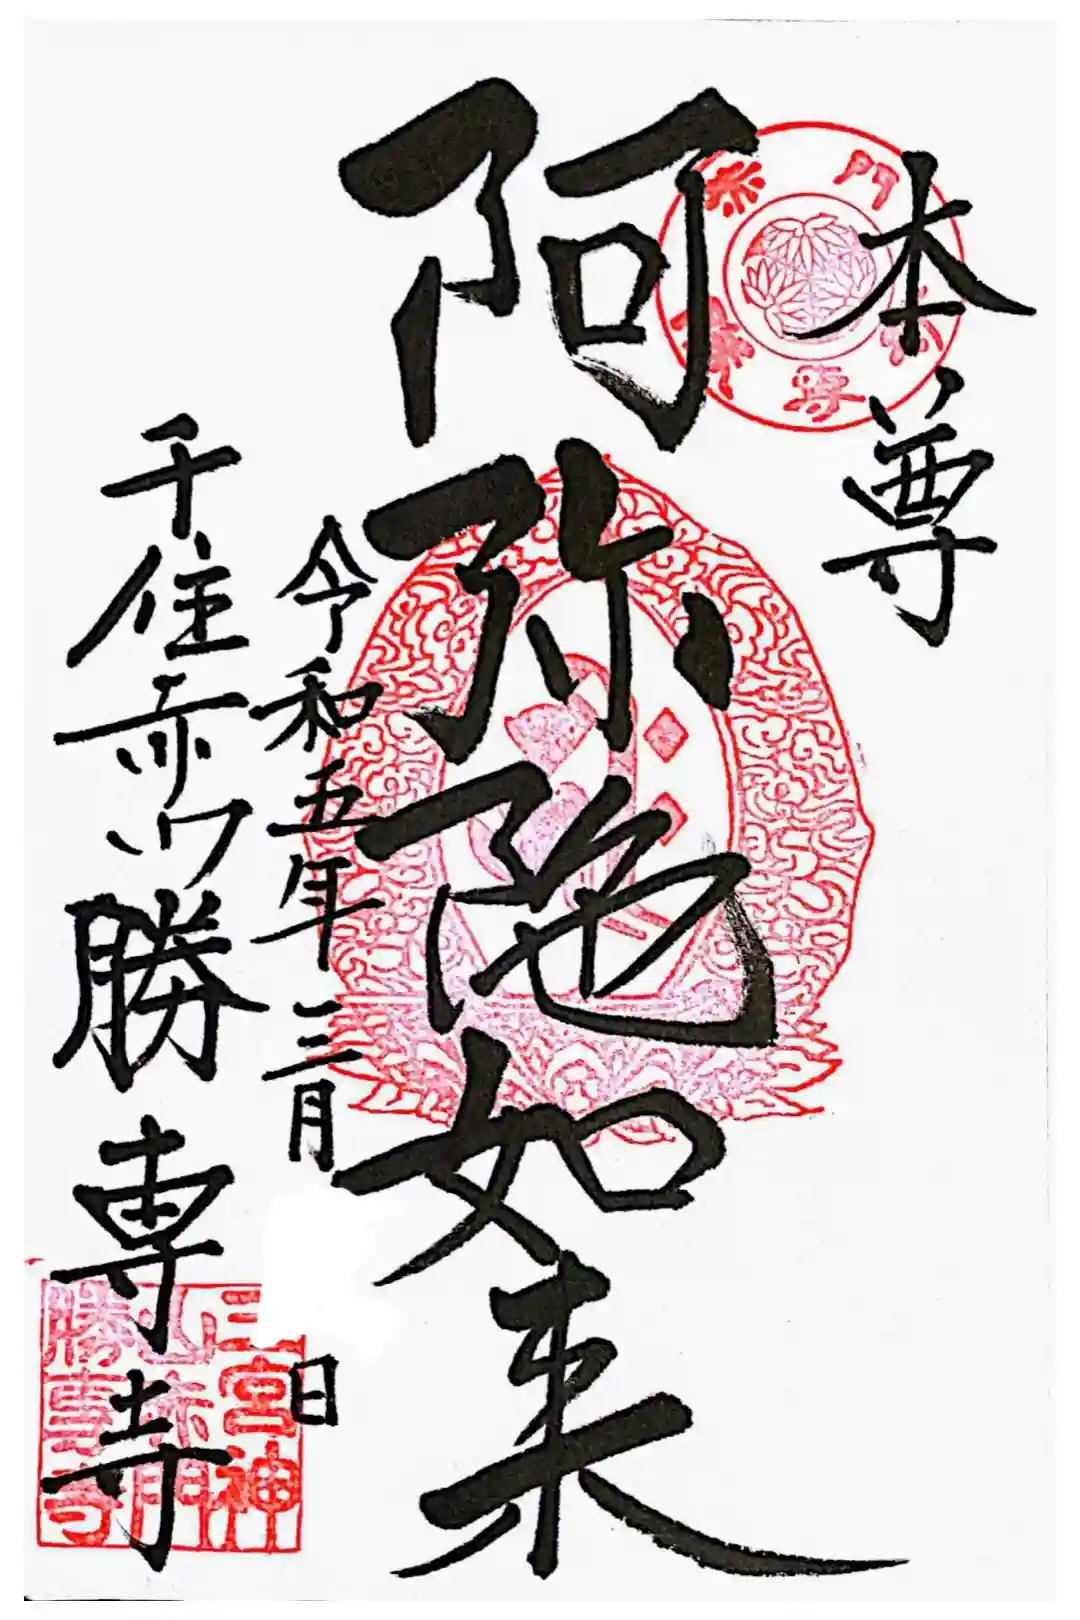 本尊
阿弥陀如来
令和五年三月 日
千住赤門勝専寺
三宮神
山赤門
勝専寺